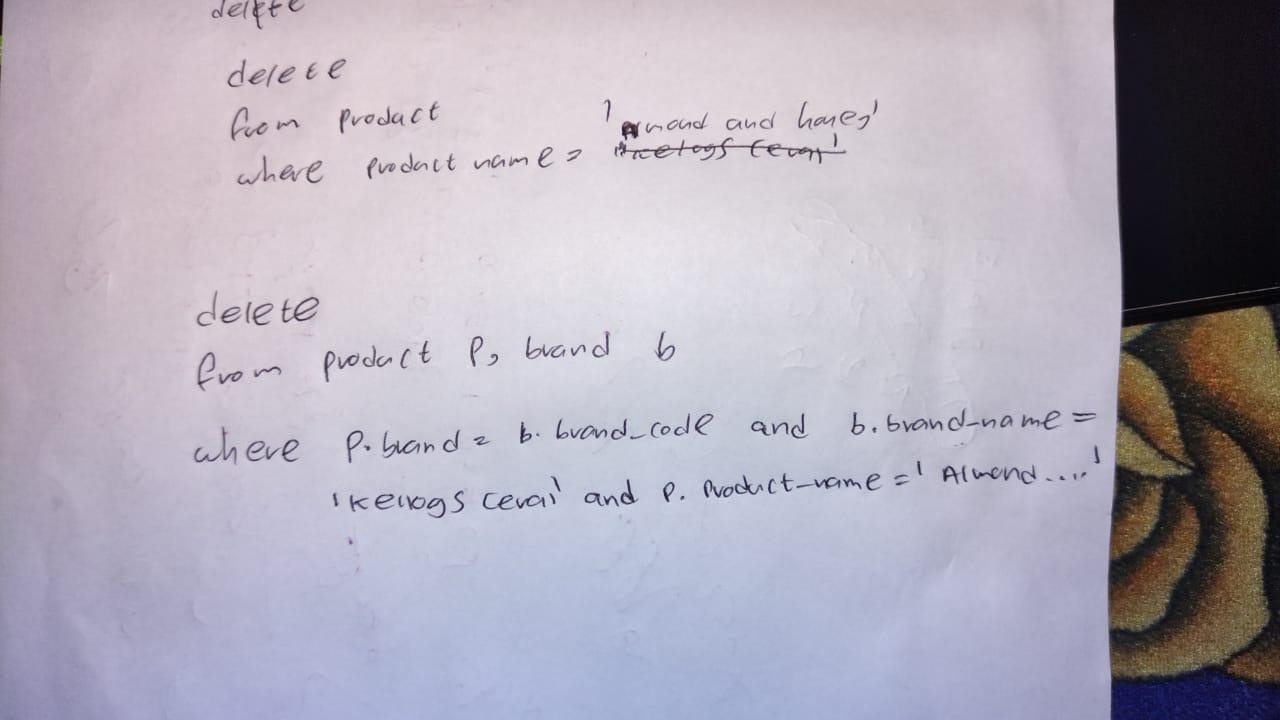 delete
delete
from product
where product name = 'Amond and honey'
delete
from product P, brand b
where P.brand = b.brand_code and b.brand_name =
'Kellogs Ceral' and P.Product_name = 'Almond....'